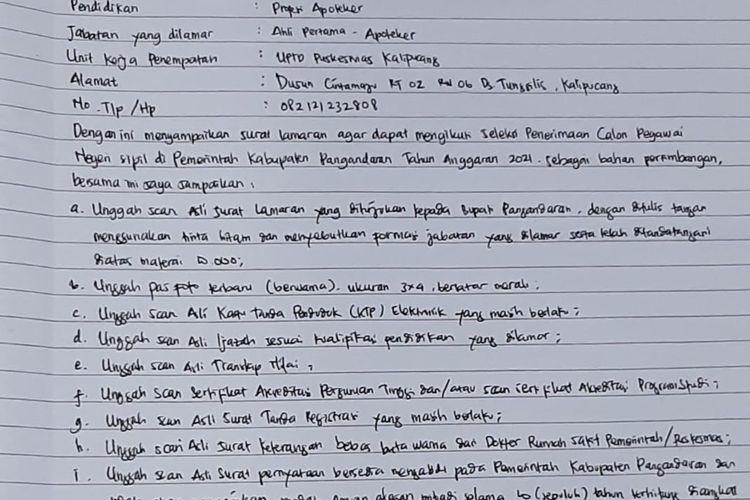 Pendidikan : Profesi Apoteker
Jabatan yang dilamar : Ahli Pertama - Apoteker
Unit Kerja Penempatan : UPTD Puskesmas Kalipucang
Alamat : Dusun RT 02 RW 06 Ds Tunggilis, Kalipucang
No. Tlp /Hp : 082121232808
Dengan ini menyampaikan surat lamaran agar dapat mengikuti Seleksi Penerimaan Calon Pegawai
Negeri Sipil di Pemerintah Kabupaten Pangandaran Tahun Anggaran 2021. Sebagai bahan pertimbangan,
bersama ini saya sampaikan :
a. Unggah scan Asli Surat Lamaran yang ditujukan kepada Bupati Pangandaran, dengan ditulis tangan
menggunakan tinta hitam dan menyebutkan formasi jabatan yang dilamar serta telah ditandatangani
diatas materai 10.000;
b. Unggah pas foto terbaru (berwarna). ukuran 3x4, berlatar merah ;
c. Unggah scan Asli Kartu Tanda Penduduk (KTP) Elektronik yang masih berlaku ;
d. Unggah scan Asli Ijazah sesuai kualifikasi pendidikan yang dilamar ;
e. Unggah scan Asli Transkip Nilai ;
f. Unggah scan Sertifikat Akreditasi Perguruan Tinggi dan/atau scan sertifikat Akreditasi Program Studi ;
g. Unggah scan Asli Surat Tanda Registrasi yang masih berlaku ;
h. Unggah scan Asli Surat keterangan bebas buta warna dari Dokter Rumah Sakit Pemerintah/Puskesmas ;
i. Unggah scan Asli Surat pernyataan bersedia mengabdi pada Pemerintah Kabupaten Pangandaran dan
alasan pribadi selama 10 (sepuluh) tahun terhitung diangkat